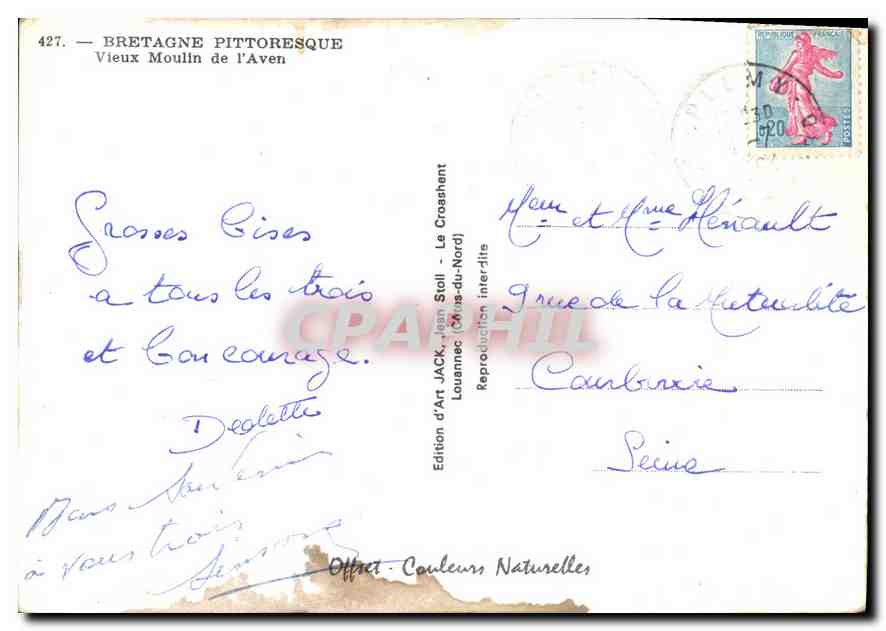 427. — BRETAGNE PITTORESQUE
Vieux Moulin de l'Aven
REPUBLIQUE FRANÇAISE
0,20
POSTES
Grosses bises
a tous les trois
et bon courage.
à vous trois
Edition d'Art JACK, Jean Stoll - Le Croashent
Louannec (Côtes-du-Nord)
Reproduction interdite
CPAPHIL
et Mme Hénault
9 rue de la Mutualité
Seine
Offset - Couleurs Naturelles